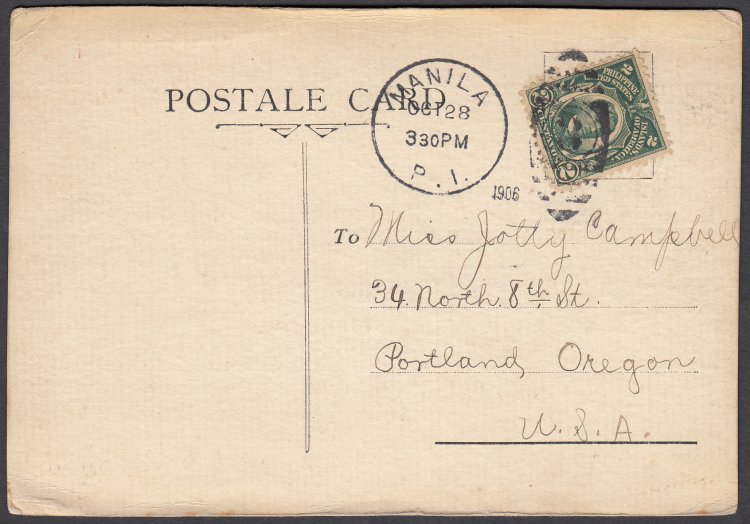 POSTALE CARD
MANILA
OCT 28
3 30 PM
P. I.
1906
PHILIPPINE
ISLANDS
UNITED STATES
OF AMERICA
2 2
2 CENTAVOS 2
To Miss Jotty Campbell
34 North 8th St.
Portland, Oregon
U. S. A.